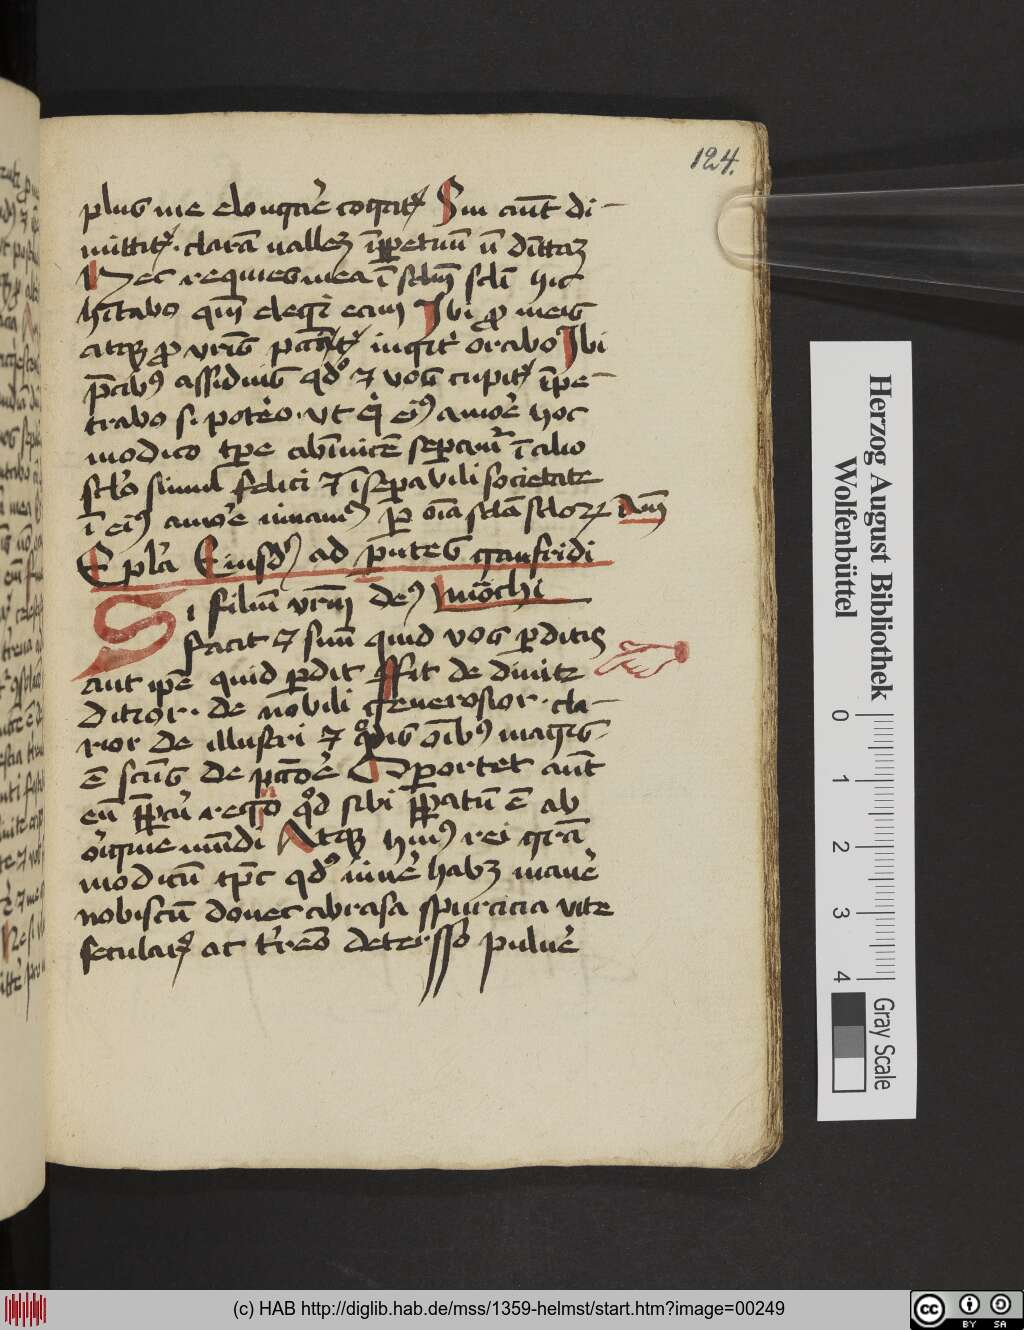 124.
plus me elongare cogitat͛ Sin aut di-
mittit͛. claram vallem in ppetuu n dimittam
Hec requies mea i sclm scli hic
hitabo qm elegi eam Ibi ꝓ meis
atqꝫ ꝓ vris pctis iugit͛ orabo Ibi
p̄cibꝰ assiduis qdo ⁊ vos cupitis ipe-
trabo si potero. vt q̄ eiꝰ amore hoc
modico tꝑe abinuice sepamur i alio
sclo simul felici ⁊ iseꝑabili societate
i eiꝰ amore viuamꝰ ꝑ oia scla sclorꝝ Am
Epla Eiusdē ad pntes gaufridi
Si filiu vrm deꝰ mochi
facit ⁊ suu quid vos ꝑditis
aut ipe quid ꝑdit ffit de diuite
ditior. de nobili generosior. cla-
rior de illustri ⁊ qd pl' is oibꝰ magis
e scus de pctore Oportet aut
eu ꝑpari regno qd sibi ꝑpatu e ab
origine mundi Atqꝫ huiꝰ rei gra
modicu tps qdo viue habꝫ mane
nobiscu donec abrasa spurcicia vite
secularis ac treo detersso puluere
Herzog August Bibliothek
Wolfenbüttel
0 1 2 3 4
Gray Scale
(c) HAB http://diglib.hab.de/mss/1359-helmst/start.htm?image=00249
cc BY SA